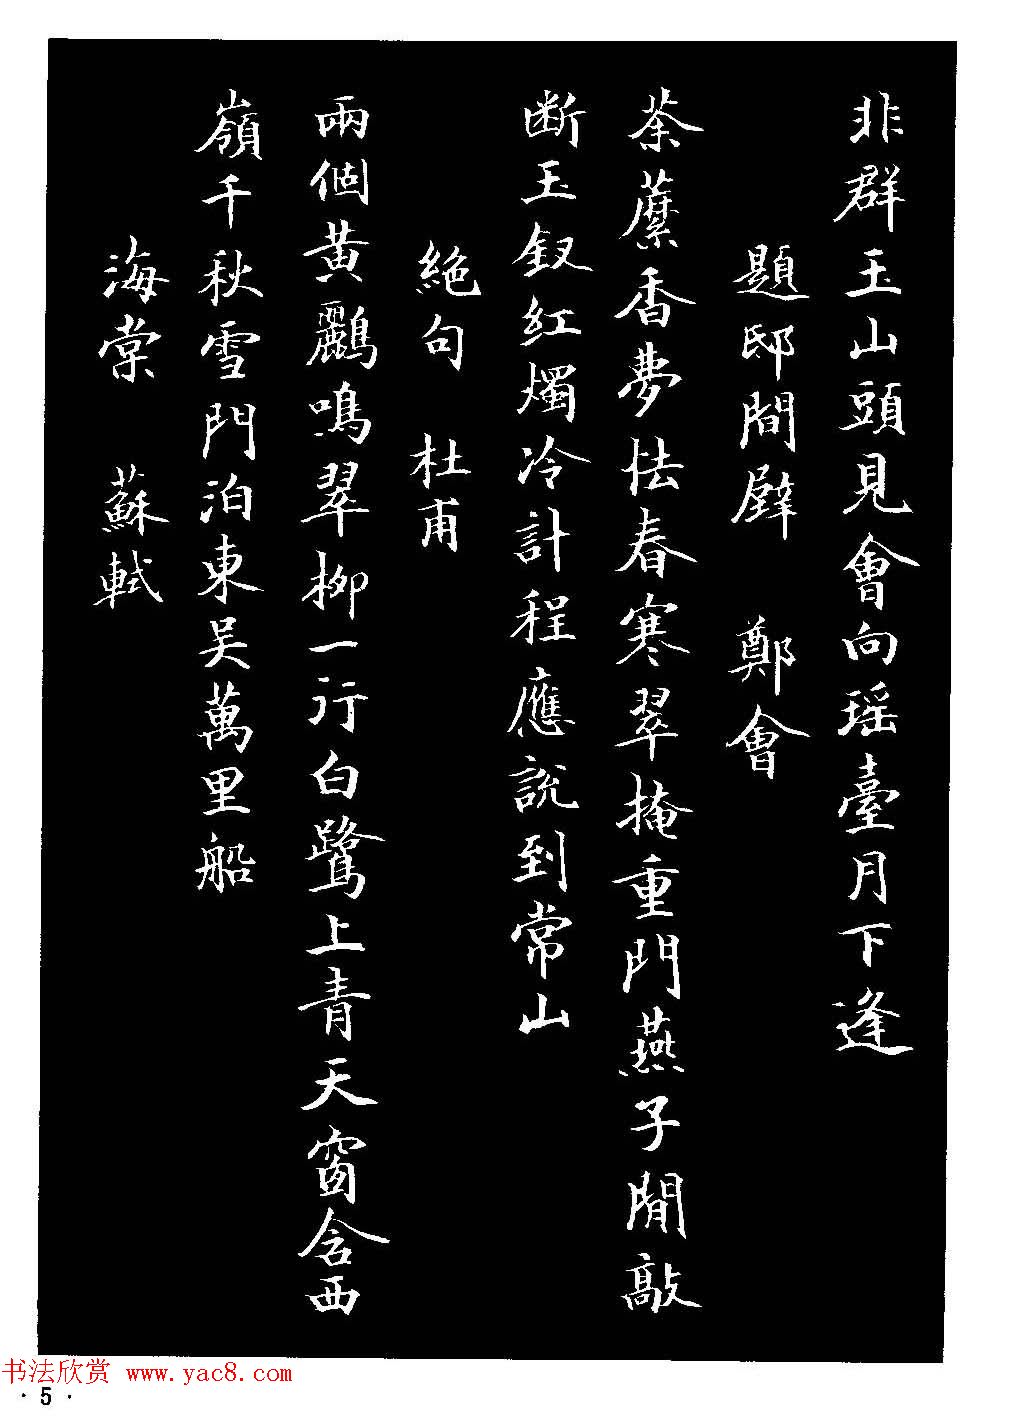 非群玉山頭見會向瑶臺月下逢
題邸間壁 鄭會
荼蘼香夢怯春寒翠掩重門燕子閒敲
断玉釵紅燭冷計程應說到常山
絕句 杜甫
兩個黃鸝鳴翠柳一行白鷺上青天窗含西
嶺千秋雪門泊東吳萬里船
海棠 蘇軾
书法欣赏 www.yac8.com
· 5 ·